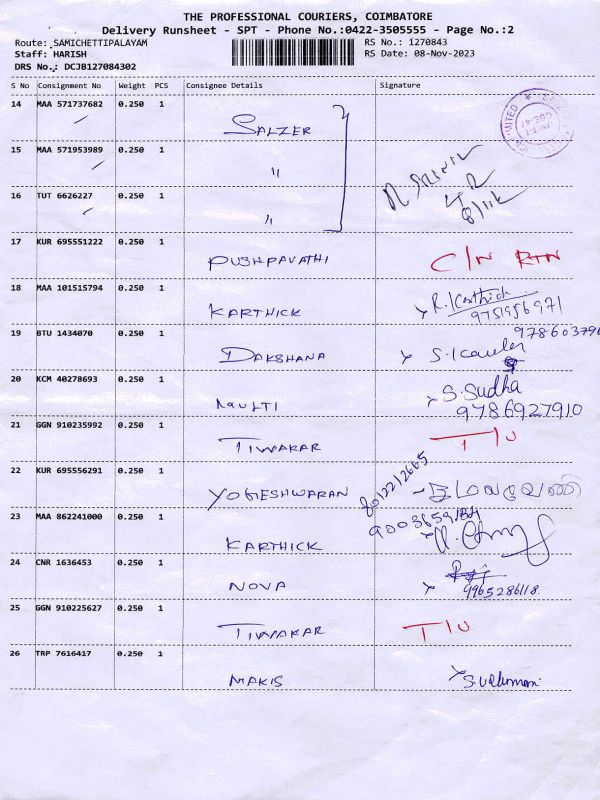 THE PROFESSIONAL COURIERS, COIMBATORE
Delivery Runsheet - SPT - Phone No.:0422-3505555 - Page No.:2
Route: SAMICHETTIPALAYAM RS No.: 1270843
Staff: HARISH RS Date: 08-Nov-2023
DRS No.: DCJB127084302
S No Consignment No Weight PCS Consignee Details Signature
14 MAA 571737682 0.250 1 SALZER
15 MAA 571953989 0.250 1 "
16 TUT 6626227 0.250 1 "
17 KUR 695551222 0.250 1 PUSHPAVATHI C/N RTN
18 MAA 101515794 0.250 1 KARTHICK R. Karthick
9751956971
19 BTU 1434070 0.250 1 DAKSHANA
20 KCM 40278693 0.250 1 MULTI S. Sudha
9786927910
21 GGN 910235992 0.250 1 TIWAKAR T/U
22 KUR 695556291 0.250 1 YOGESHWARAN 8012212665
23 MAA 862241000 0.250 1 KARTHICK
24 CNR 1636453 0.250 1 NOVA
9965286118
25 GGN 910225627 0.250 1 TIWAKAR T/U
26 TRP 7616417 0.250 1 MAKIS